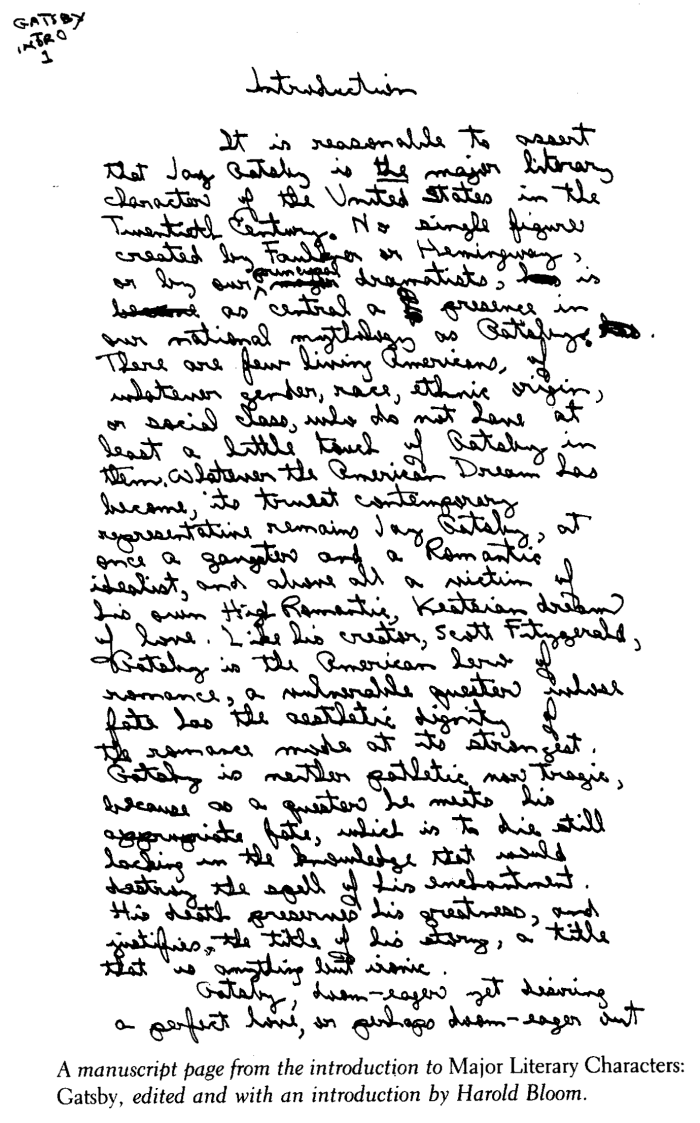 GATSBY
INTRO
1
Introduction
It is reasonable to assert
that Jay Gatsby is the major literary
character of the United States in the
Twentieth Century. No single figure
created by Faulkner or Hemingway,
or by our principal major dramatists, has is
become as central a presence in
our national mythology as Gatsby.
There are few living Americans, of
whatever gender, race, ethnic origin,
or social class, who do not have at
least a little touch of Gatsby in
them. Whatever the American Dream has
become, its truest contemporary
representative remains Jay Gatsby, at
once a gangster and a Romantic
idealist, and above all a victim of
his own High Romantic, Keatsian dream
of love. Like his creator, Scott Fitzgerald,
Gatsby is the American hero of
romance, a vulnerable quester whose
fate has the aesthetic dignity of
the romance mode at its strongest.
Gatsby is neither pathetic nor tragic,
because as a quester he meets his
appropriate fate, which is to die still
lacking in the knowledge that would
destroy the spell of his enchantment.
His death preserves his greatness, and
justifies the title of his story, a title
that is anything but ironic.
Gatsby, doom-eager yet desiring
a perfect love, or perhaps doom-eager out
A manuscript page from the introduction to Major Literary Characters:
Gatsby, edited and with an introduction by Harold Bloom.